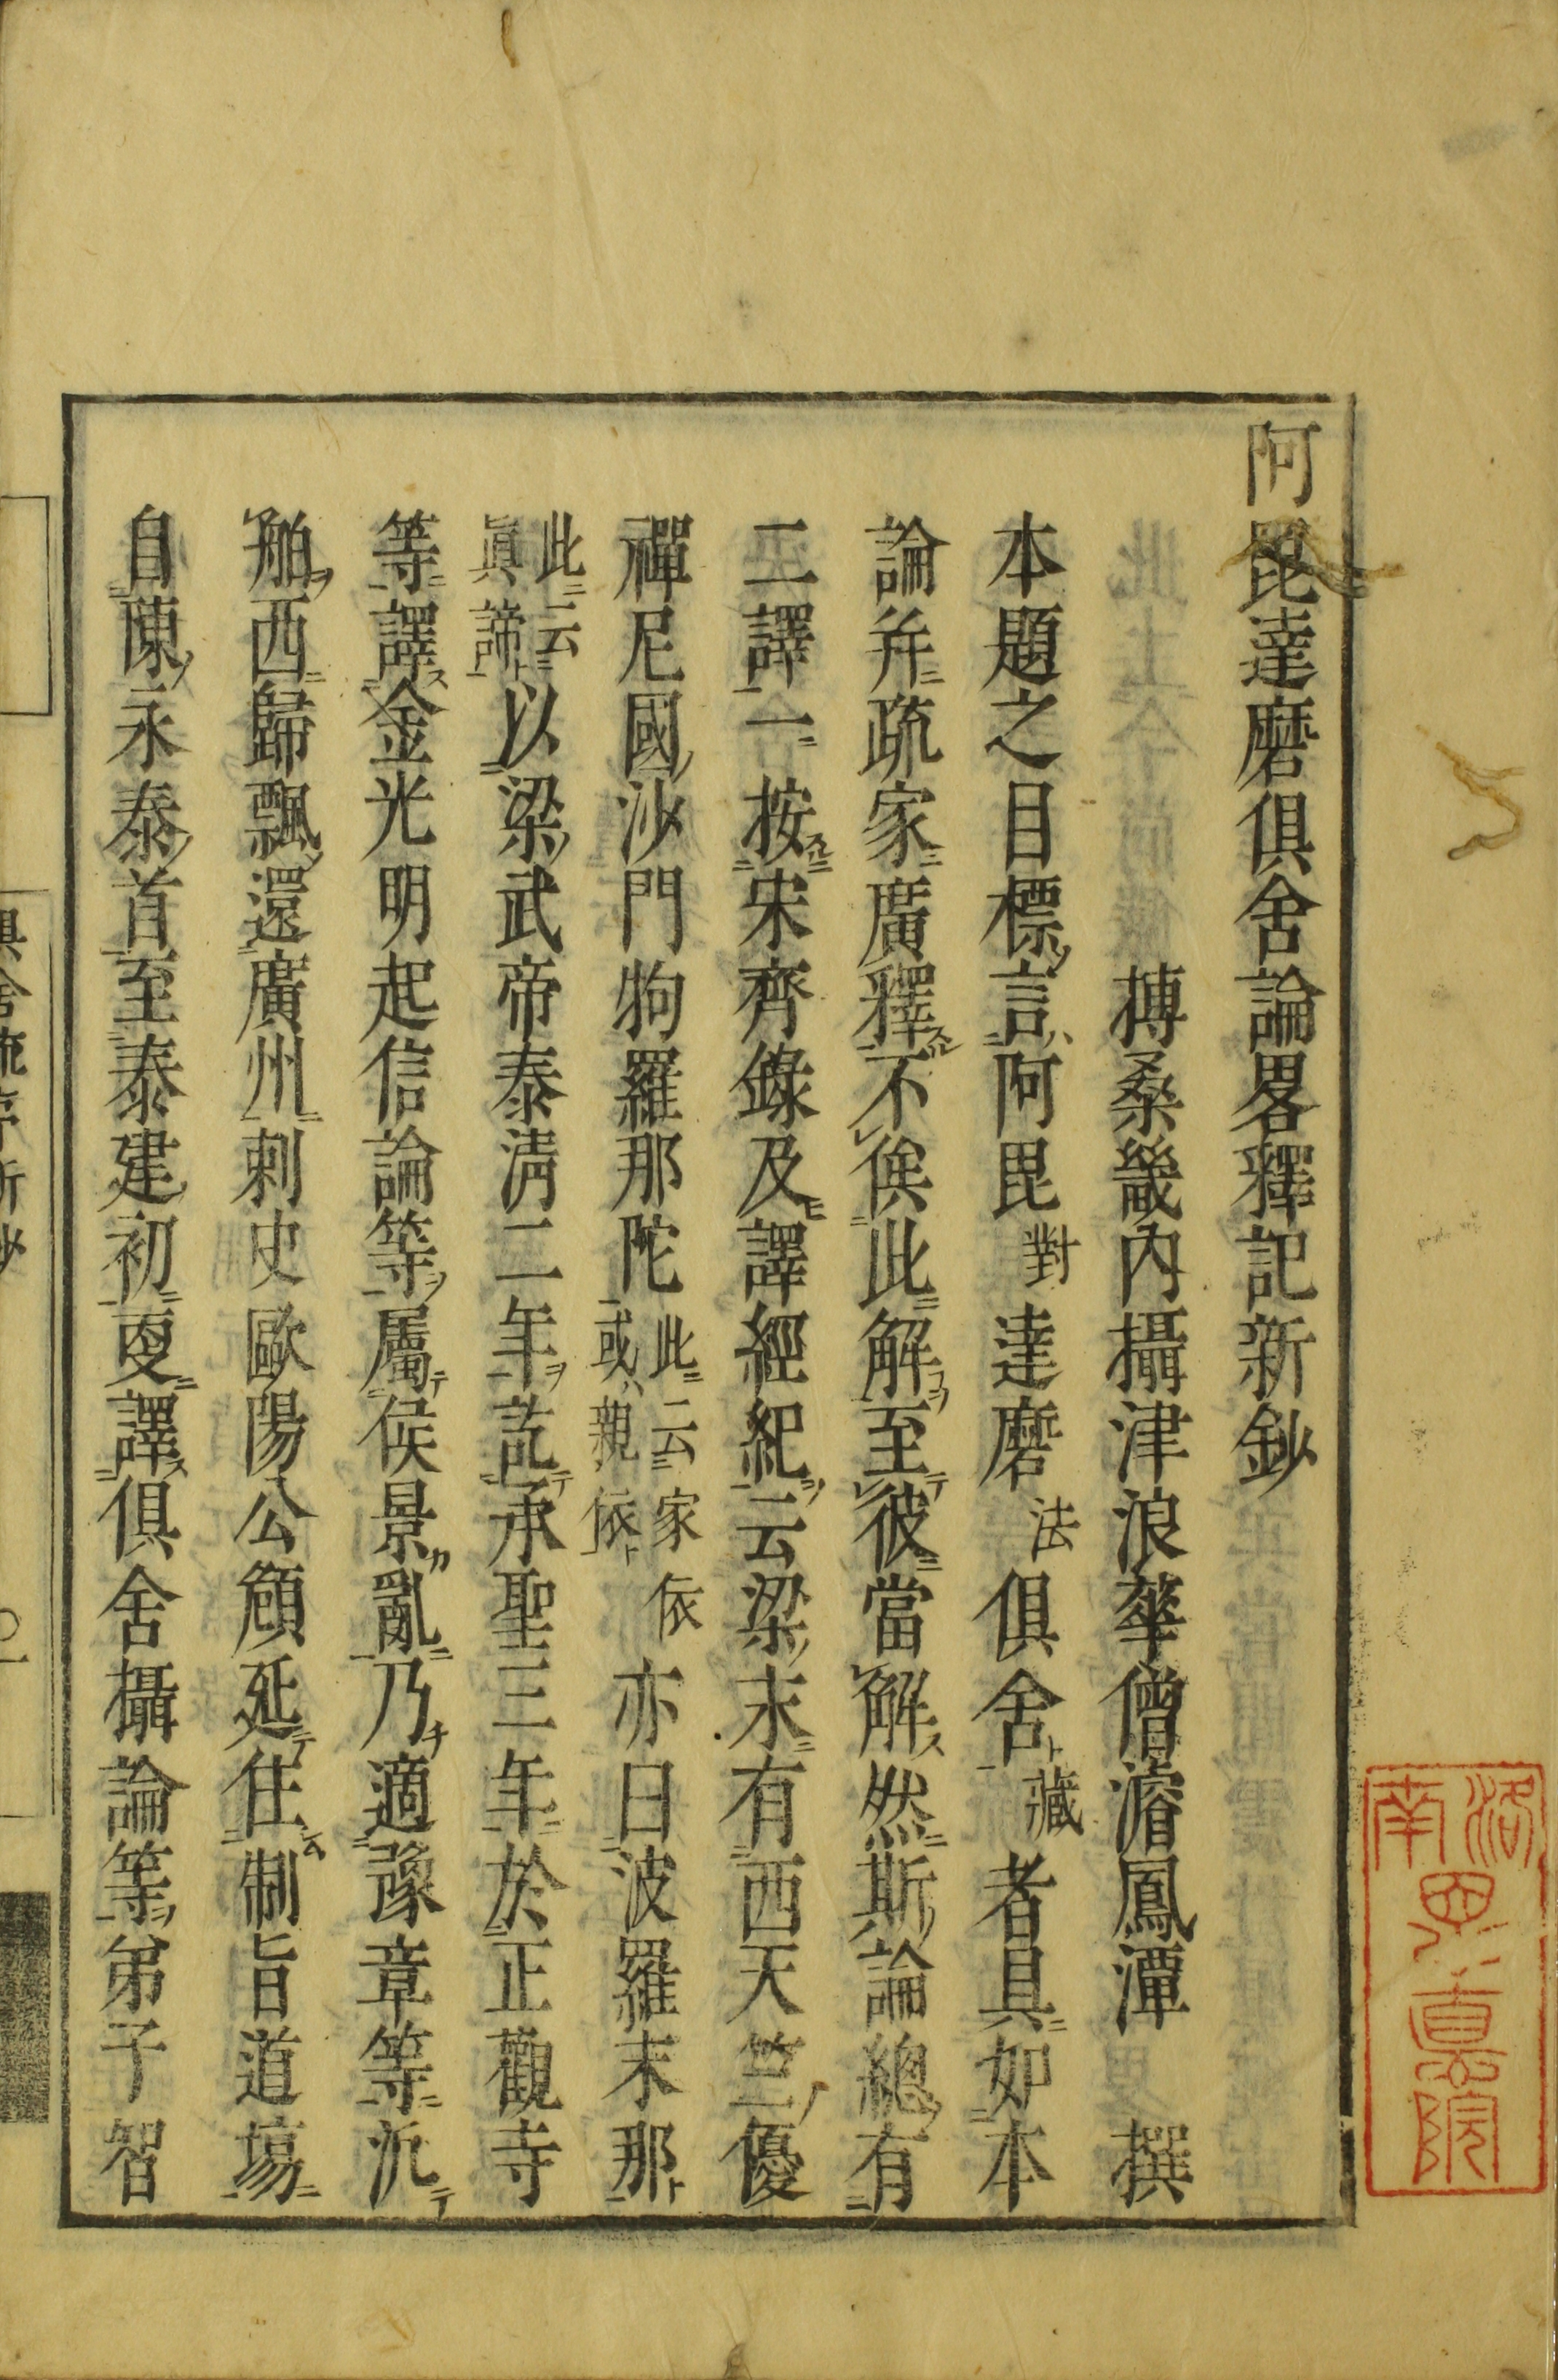 阿毘達磨俱舍論畧釋記新鈔
搏桑畿內攝津浪華僧濬鳳潭　撰
本題之目標言阿毘對達磨法俱舍藏者具如本
論并疏家廣釋不俟此解至彼當解然斯論總有
二譯一按宋齊錄及譯經紀云梁末有西天竺優
禪尼國沙門拘羅那陀此云家依或親依亦曰波羅末那
此云眞諦以梁武帝泰清二年訖承聖三年於正觀寺
等譯金光明起信論等屬侯景亂乃適豫章等汎
舶西歸飄還廣州刺史歐陽公頠延住制旨道場
自陳永泰首至泰建初更譯俱舍攝論等弟子智
洛南
眞院